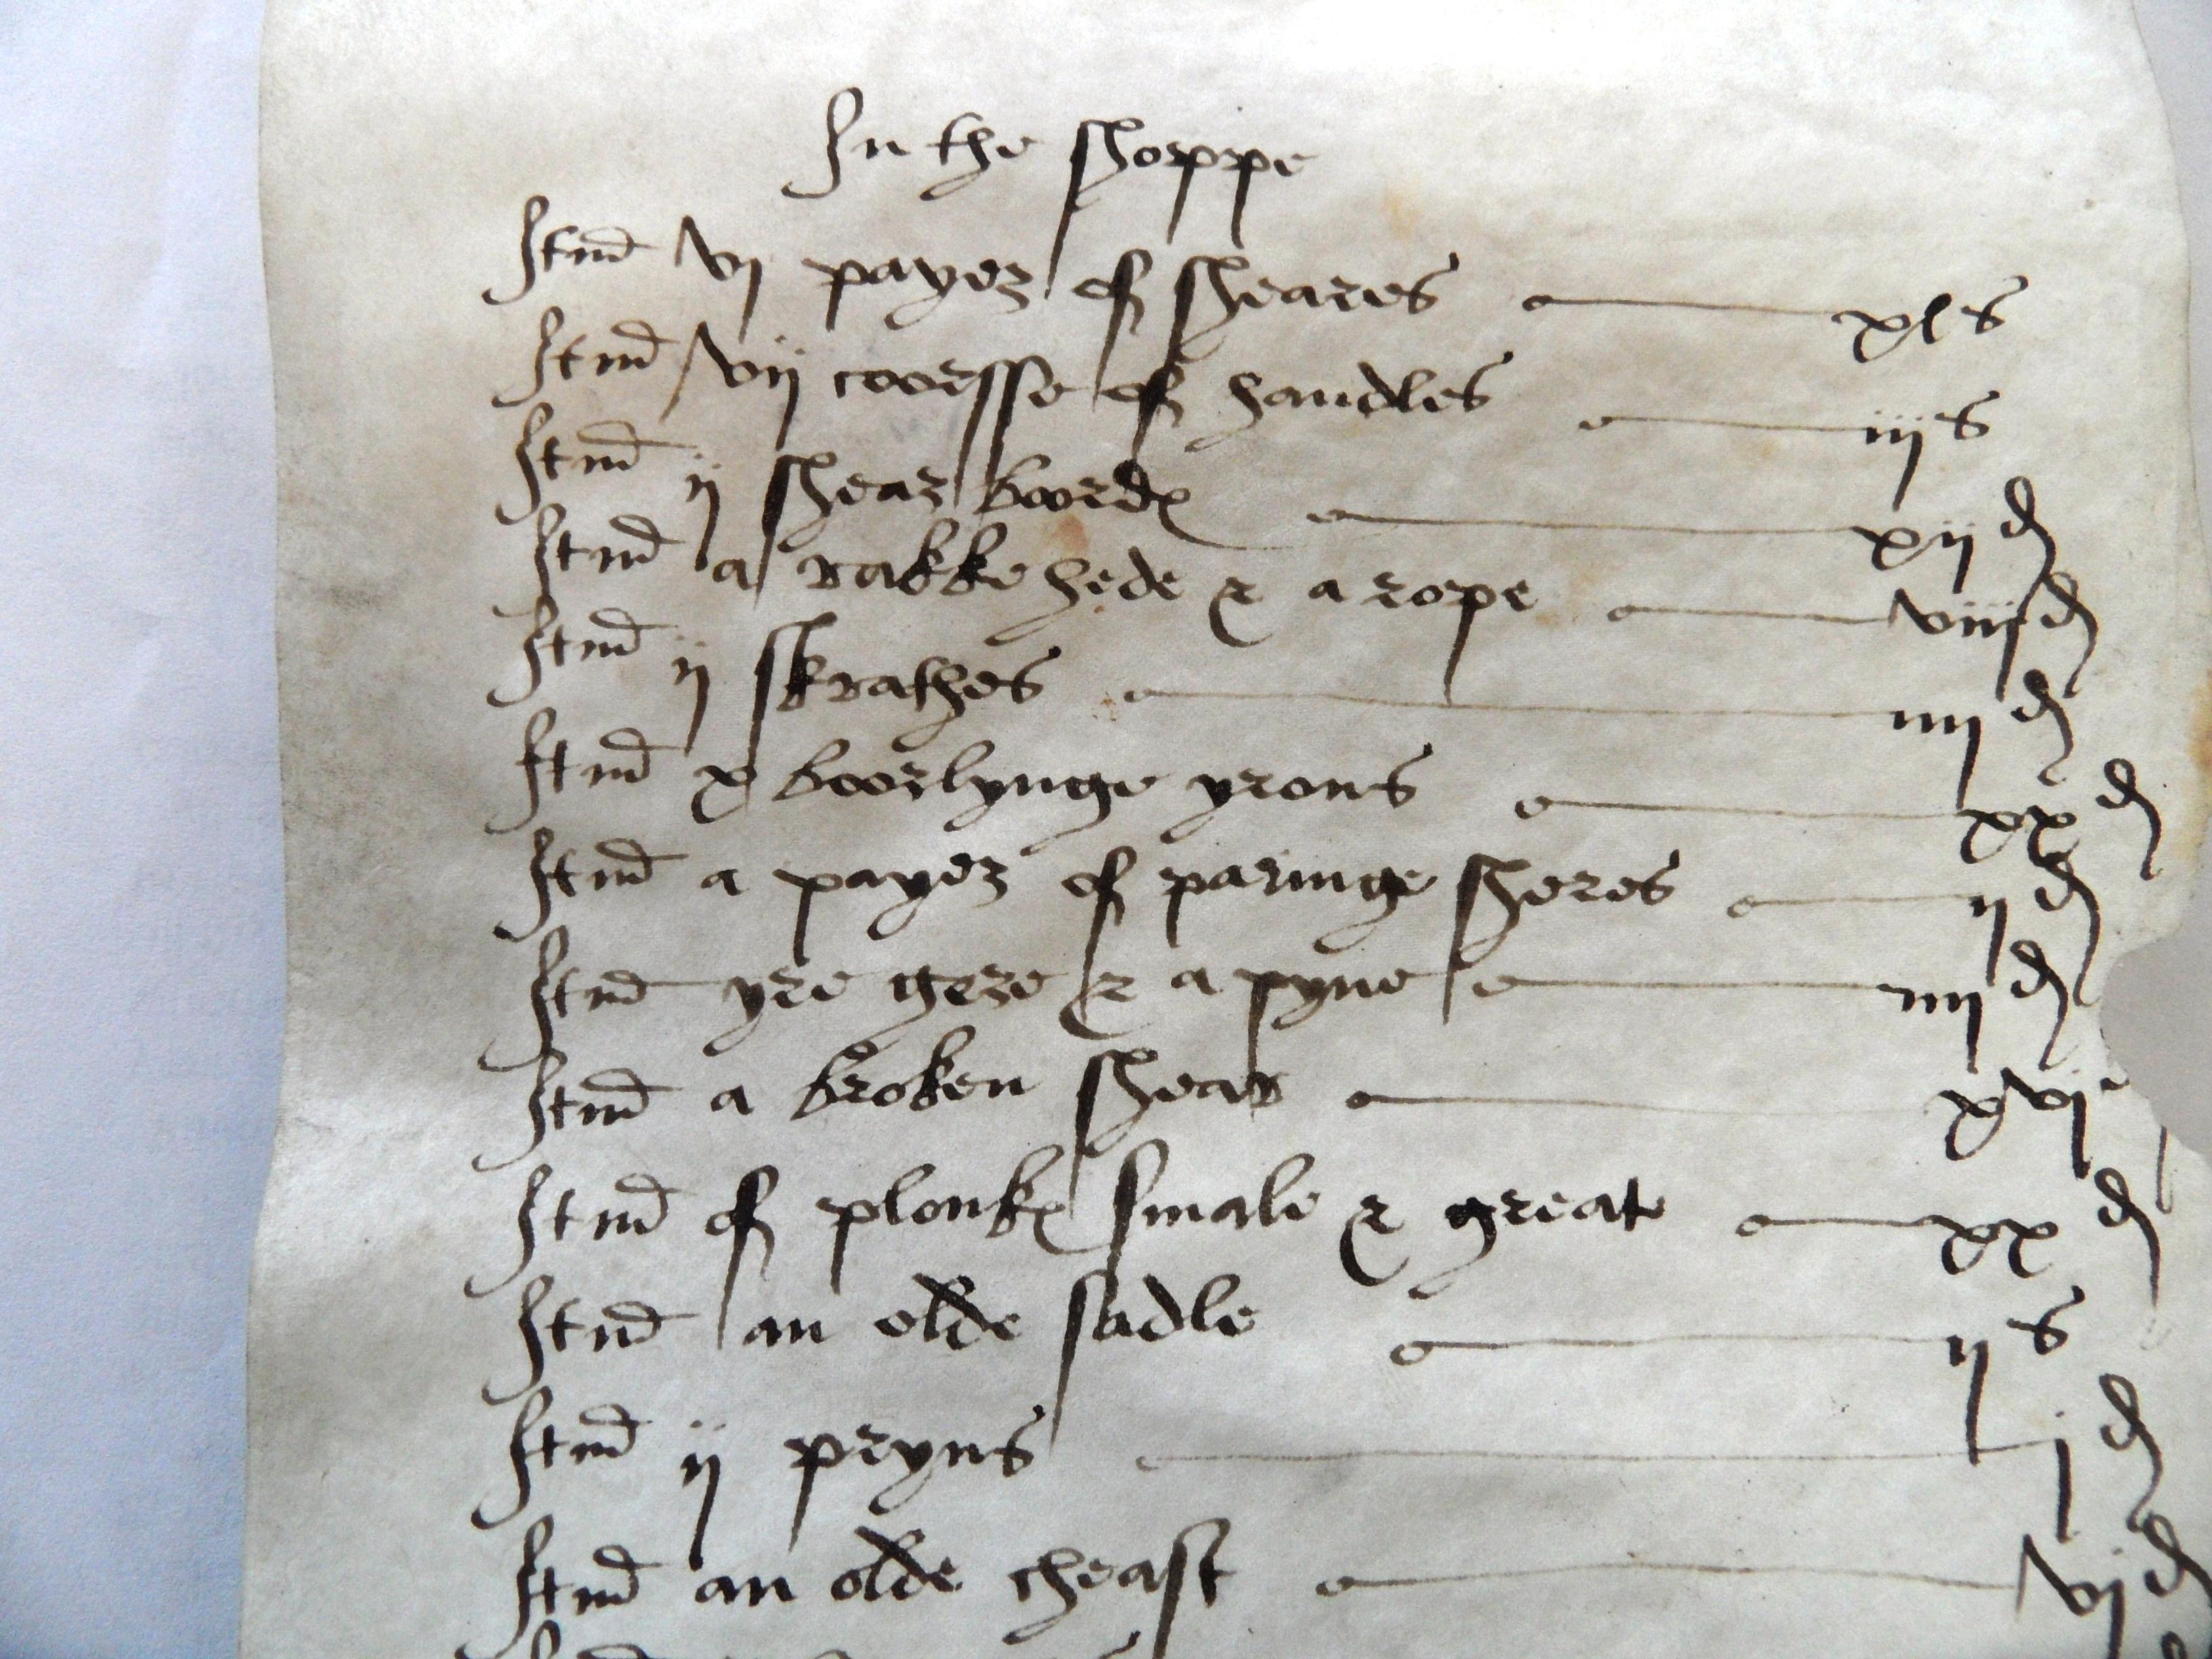 In the shoppe
Itm̄ vj payer of sheares xls
Itm̄ vij coorsse of handles iijs
Itm̄ ij shear boordꝭ xijd
Itm̄ a rakke hede & a rope viijd
Itm̄ ij skrathes iiijd
Itm̄ x boorlynge yrons xxd
Itm̄ a payer of paringe sheres ijd
Itm̄ yre gere & a pyne iiijd
Itm̄ a broken shear xvj
Itm̄ of plonkꝭ smale & great xxd
Itm̄ an olde sadle ijs
Itm̄ ij pryns jd
Itm̄ an olde cheast vjd